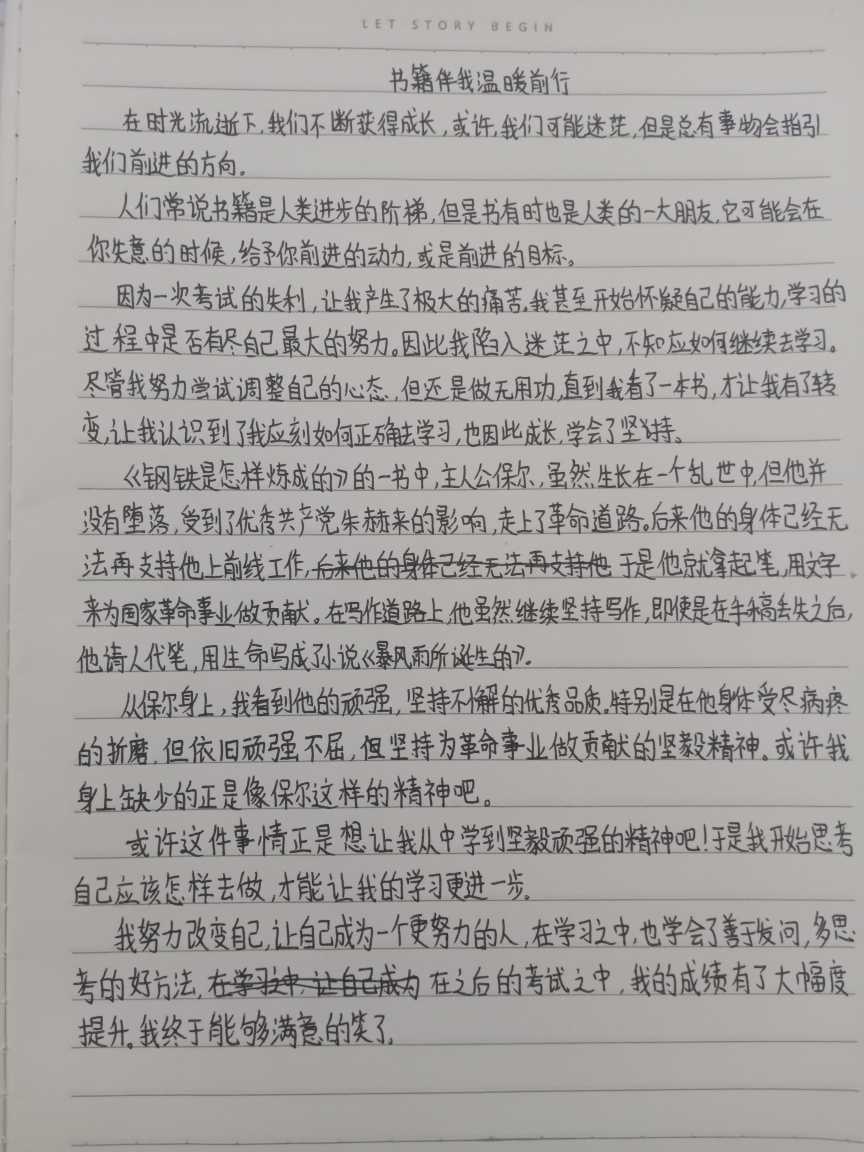 LET STORY BEGIN
书籍伴我温暖前行
在时光流逝下,我们不断获得成长,或许,我们可能迷茫,但是总有事物会指引
我们前进的方向。
人们常说书籍是人类进步的阶梯,但是书有时也是人类的一大朋友,它可能会在
你失意的时候,给予你前进的动力,或是前进的目标。
因为一次考试的失利,让我产生了极大的痛苦,我甚至开始怀疑自己的能力,学习的
过程中是否有尽自己最大的努力。因此我陷入迷茫之中,不知应如何继续去学习。
尽管我努力尝试调整自己的心态,但还是做无用功,直到我看了一本书,才让我有了转
变,让我认识到了我应刻如何正确去学习,也因此成长,学会了坚持。
《钢铁是怎样炼成的》的一书中,主人公保尔,虽然生长在一个乱世中,但他并
没有堕落,受到了优秀共产党朱赫来的影响,走上了革命道路。后来他的身体已经无
法再支持他上前线工作,后来他的身体已经无法再支持他 于是他就拿起笔,用文字
来为国家革命事业做贡献。在写作道路上,他虽然继续坚持写作,即使是在手稿丢失之后,
他请人代笔,用生命写成了小说《暴风雨所诞生的》.
从保尔身上,我看到他的顽强,坚持不懈的优秀品质。特别是在他身体受尽病疼
的折磨,但依旧顽强不屈,但坚持为革命事业做贡献的坚毅精神。或许我
身上缺少的正是像保尔这样的精神吧。
或许这件事情正是想让我从中学到坚毅顽强的精神吧!于是我开始思考
自己应该怎样去做,才能让我的学习更进一步.
我努力改变自己,让自己成为一个更努力的人,在学习之中,也学会了善于发问,多思
考的好方法,在学习之中,让自己成为 在之后的考试之中,我的成绩有了大幅度
提升。我终于能够满意的笑了.